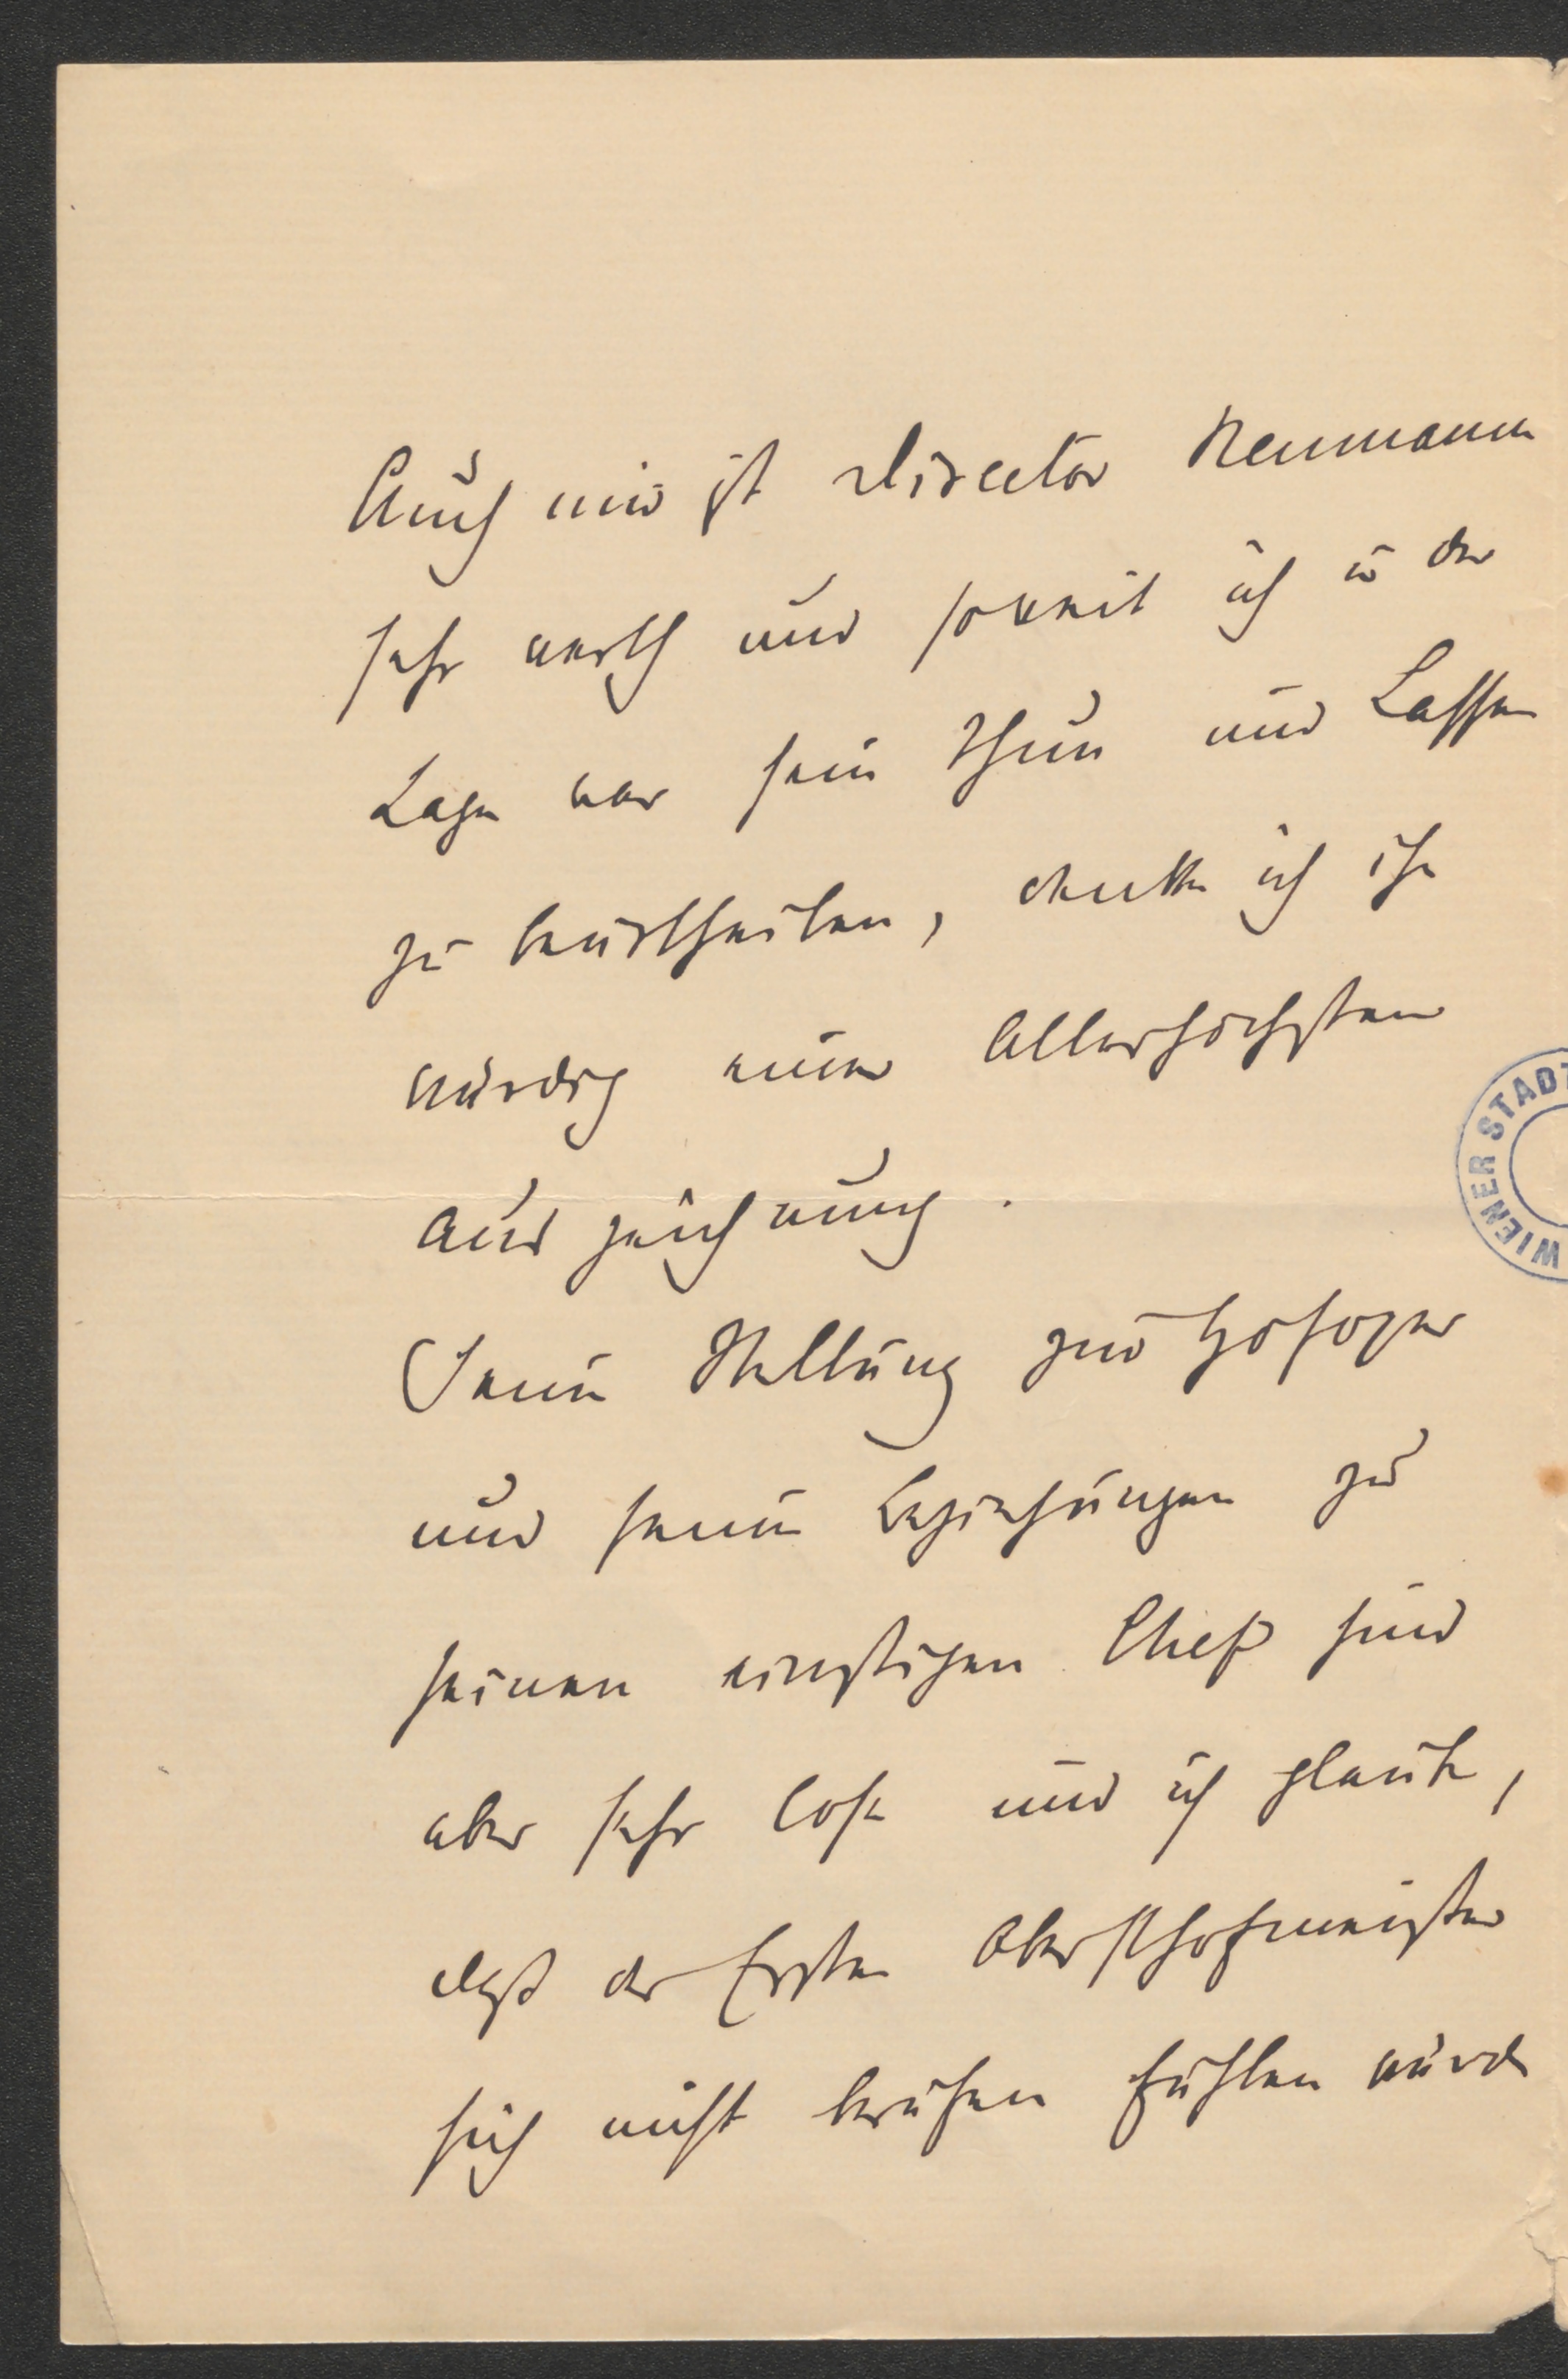 Auch mir ist Director Neumann
sehr werth und soweit ich in der
Lage war sein Thun und Lassen
zu beurtheilen, denke ich ihn
würdig einer Allerhöchsten
Auszeichnung.
Seine Stellung zur Hofoper
und seine Beziehungen zu
seinen einstigen Chefs sind
aber sehr lose und ich glaube,
daß der Erste Obersthofmeister
sich nicht berufen fühlen würde
WIENER STADT